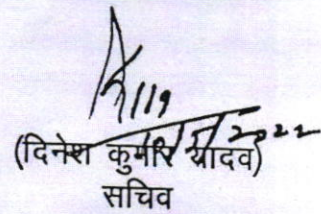 2022
(दिनेश कुमार यादव)
सचिव